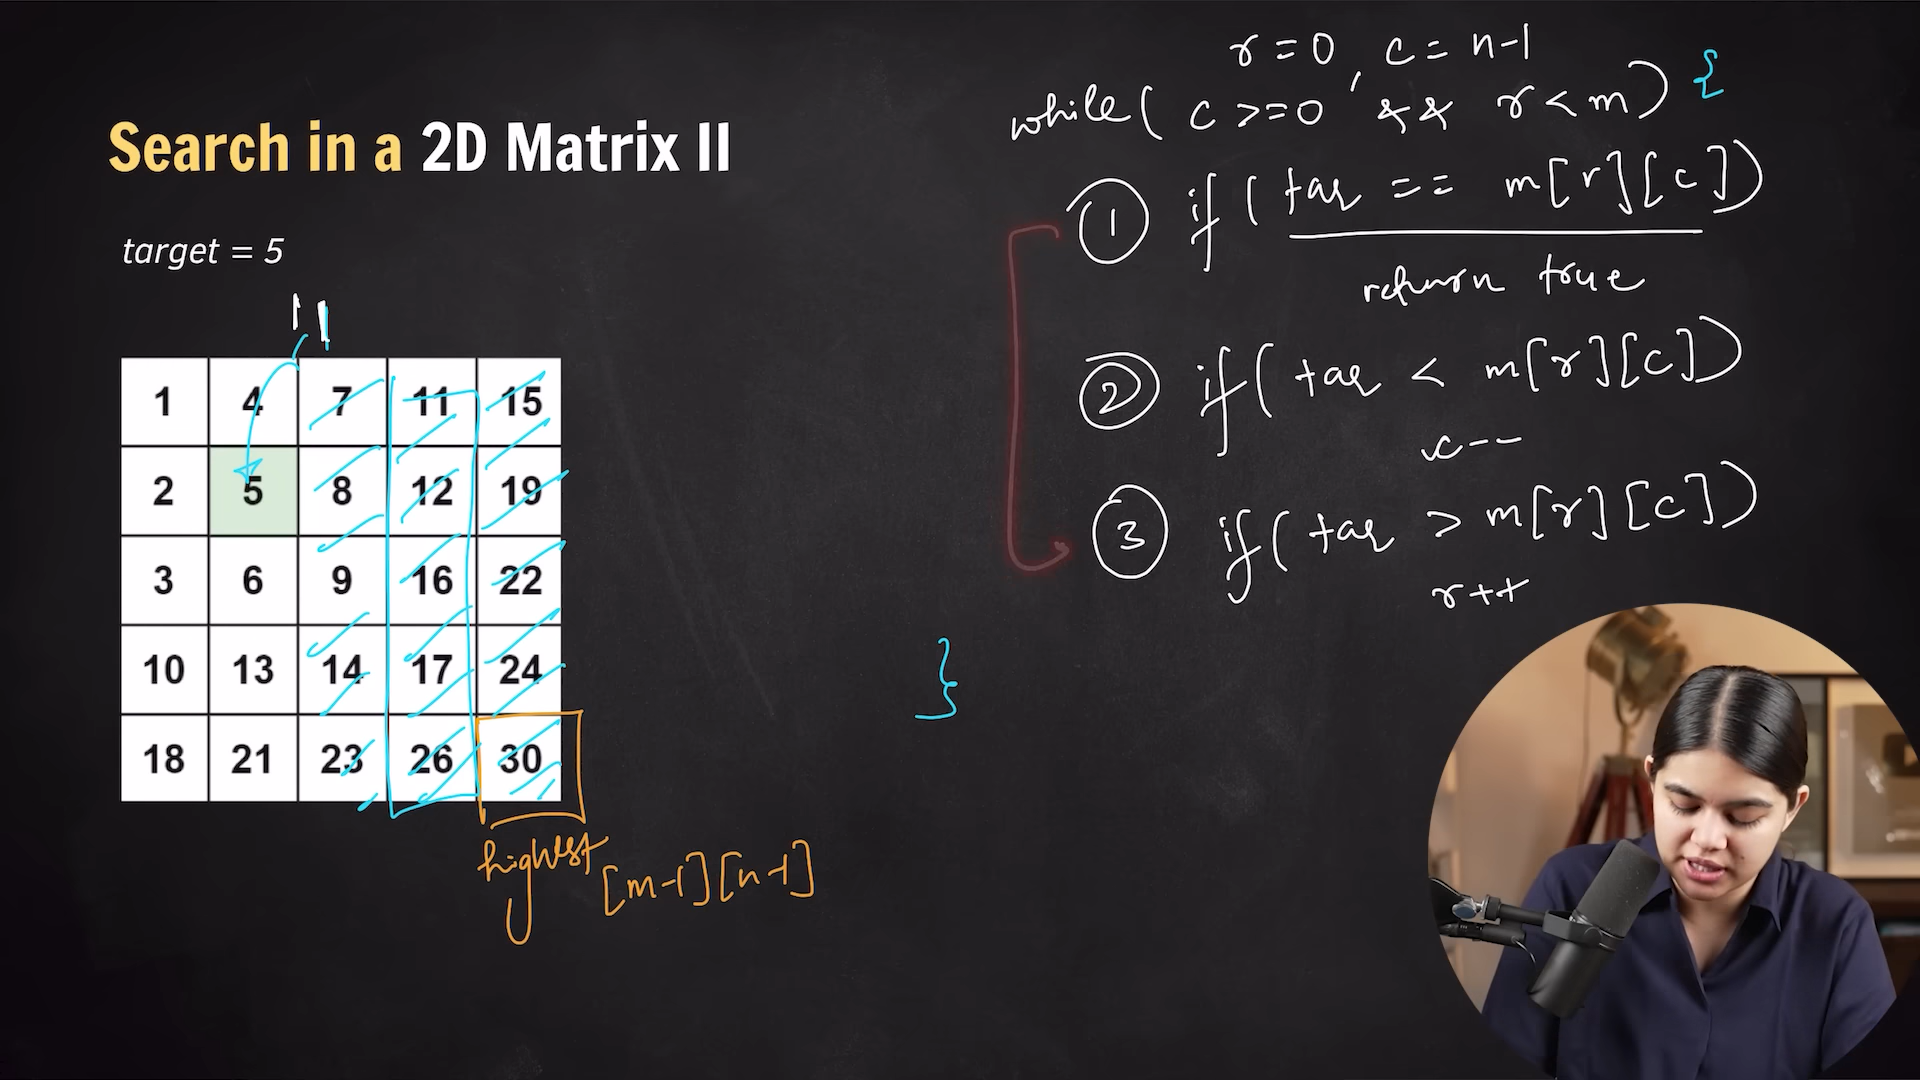 Search in a 2D Matrix II
target = 5
1 4 7 11 15
2 5 8 12 19
3 6 9 16 22
10 13 14 17 24
18 21 23 26 30
highest
[m-1][n-1]
r=0, c=n-1
while( c>=0 && r<m) {
① if( tar == m[r][c])
return true
② if( tar < m[r][c])
c--
③ if( tar > m[r][c])
r++
}